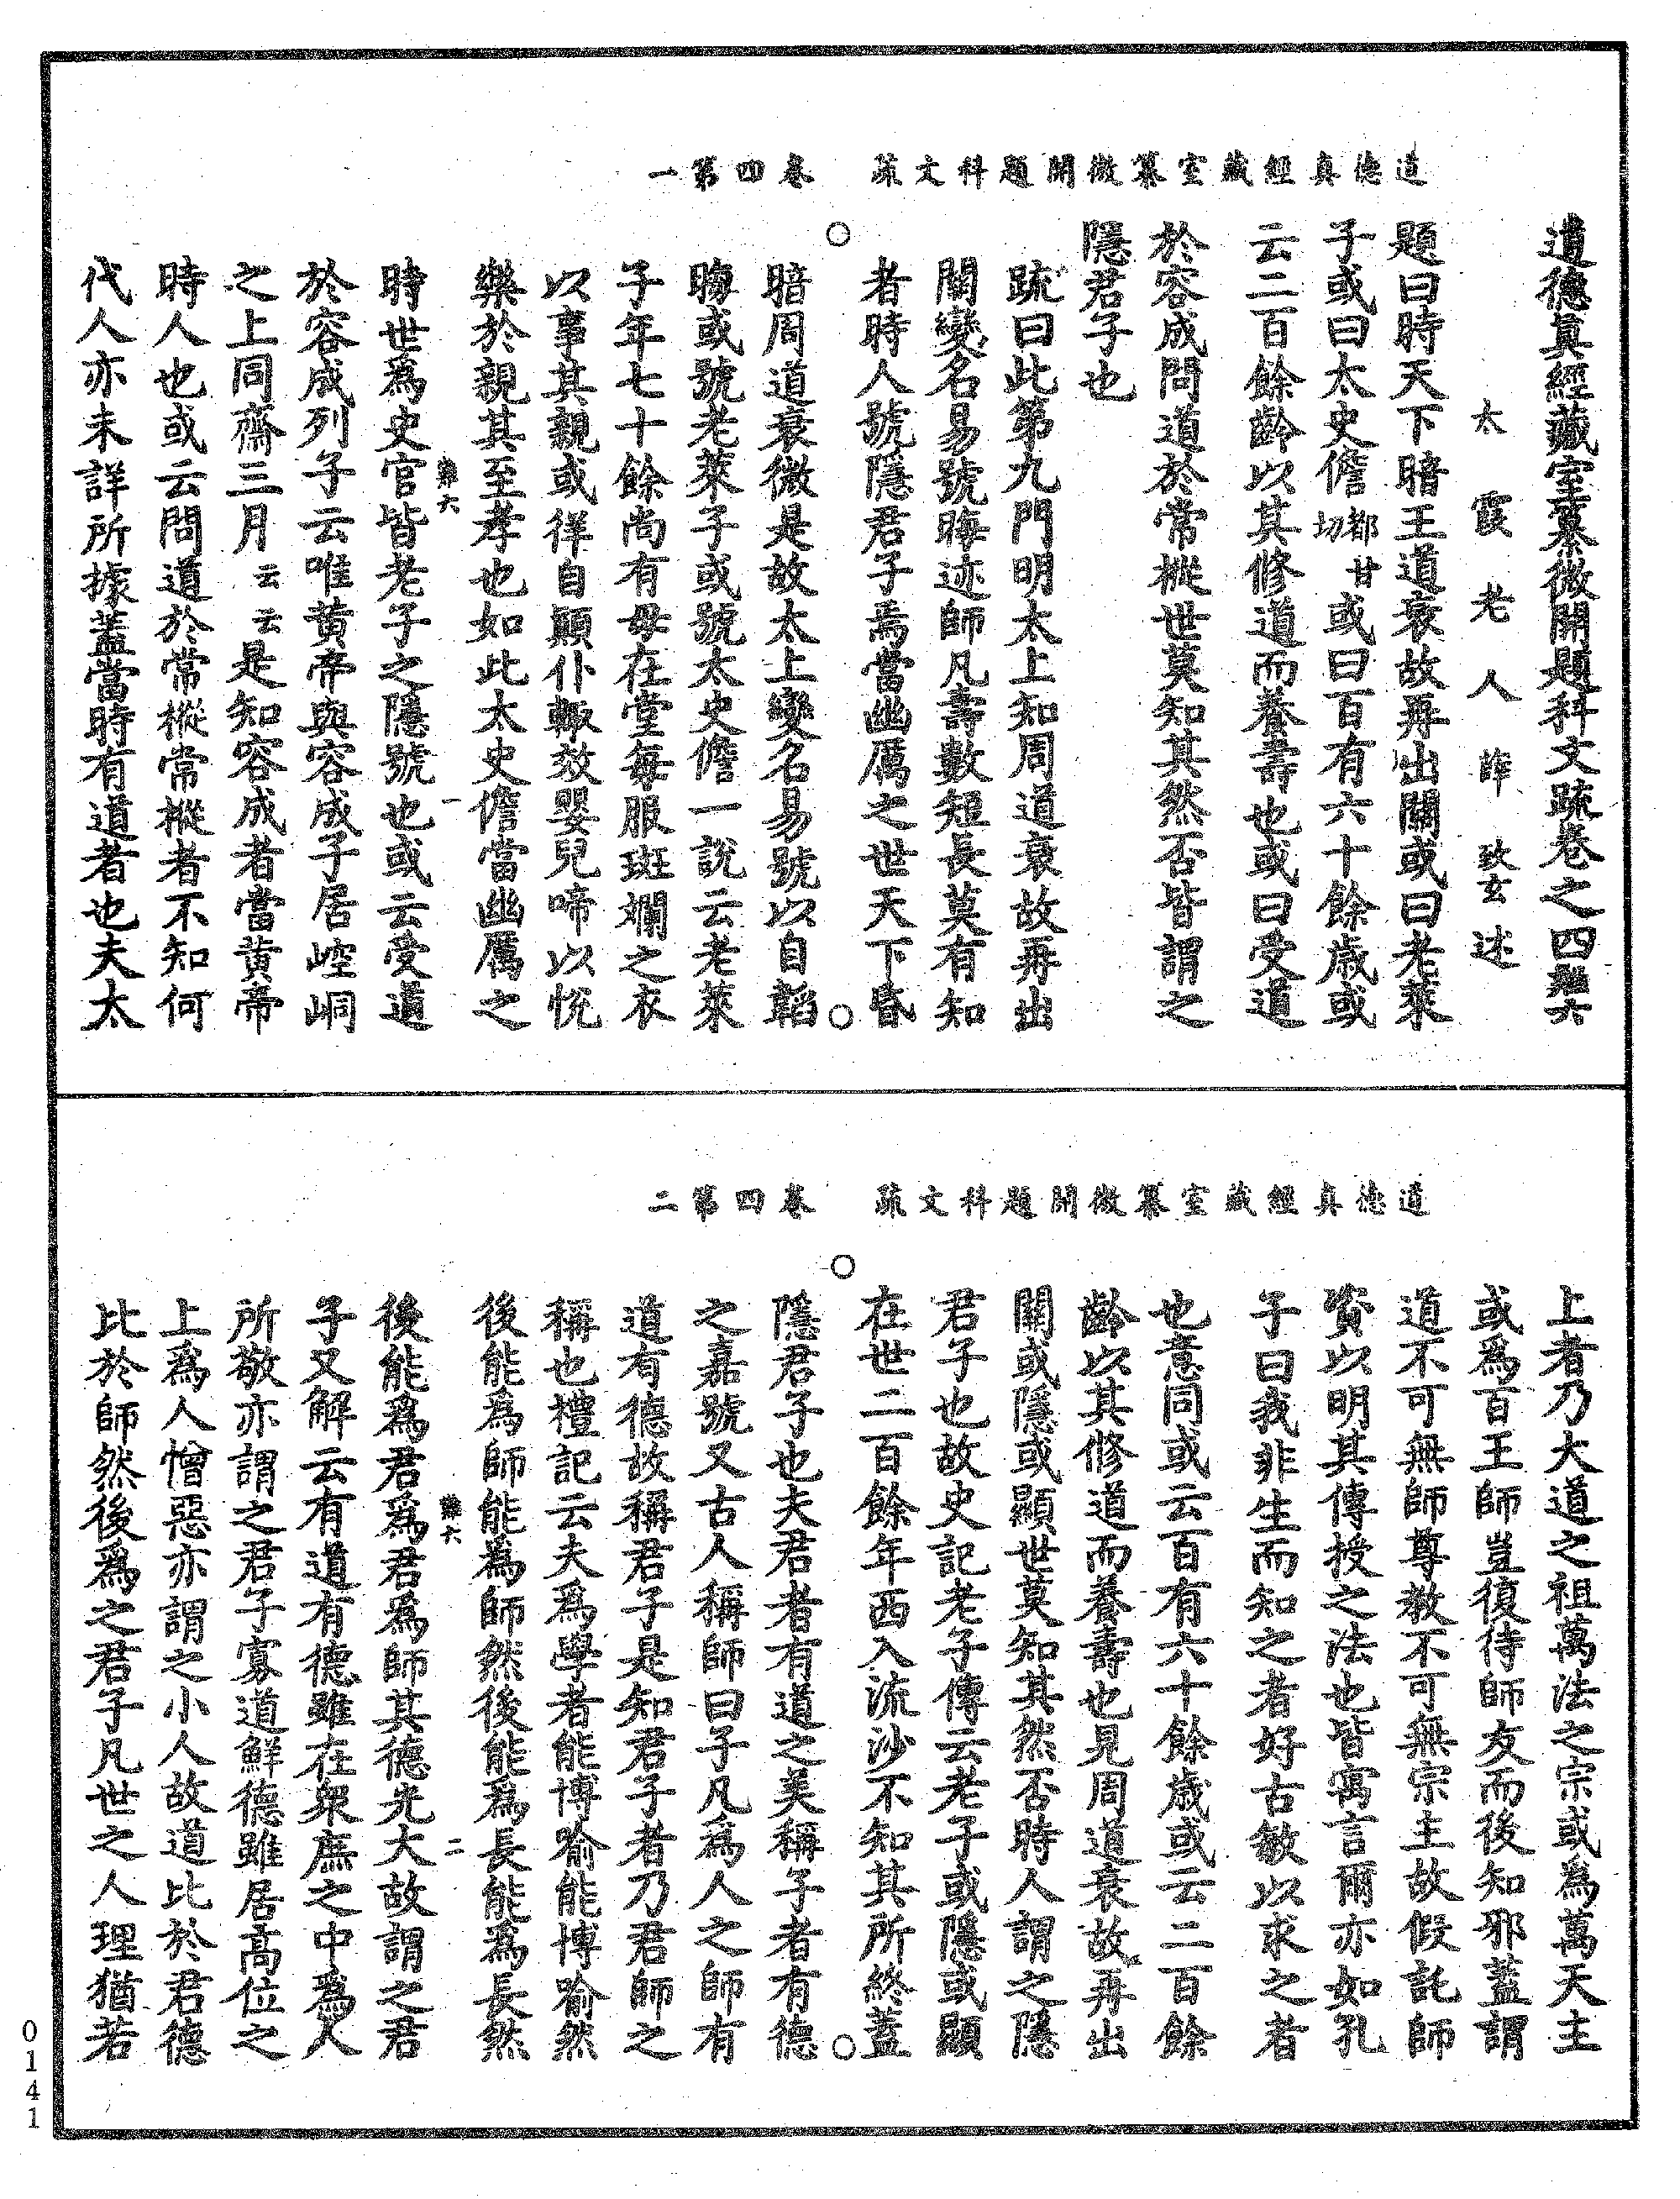 道德真經藏室纂微開題科文疏　卷四第一
道德真經藏室纂微開題科文疏卷之四
太霞老人薛致玄述
題曰時天下暗王道衰故再出關或曰老萊
子或曰太史儋都甘切或曰百有六十餘歲或
云二百餘齡以其修道而養壽也或曰受道
於容成問道於常樅世莫知其然否皆謂之
隱君子也
疏曰此第九門明太上知周道衰故再出
關變名易號晦迹師凡壽數短長莫有知
者時人號隱君子焉當幽厲之世天下昏
暗周道衰微是故太上變名易號以自韜
晦或號老萊子或號太史儋一說云老萊
子年七十餘尚有母在堂每服斑斕之衣
以事其親或徉自顛仆輙效嬰兒啼以悅
樂於親其至孝也如此太史儋當幽厲之
時世爲史官皆老子之隱號也或云受道
於容成列子云唯黃帝與容成子居崆峒
之上同齋三月云云是知容成者當黃帝
時人也或云問道於常樅常樅者不知何
代人亦未詳所據蓋當時有道者也夫太
道德真經藏室纂微開題科文疏　卷四第二
上者乃大道之祖萬法之宗或爲萬天主
或爲百王師豈復待師友而後知邪蓋謂
道不可無師尊教不可無宗主故假託師
資以明其傳授之法也皆寓言爾亦如孔
子曰我非生而知之者好古敏以求之者
也意同或云百有六十餘歲或云二百餘
齡以其修道而養壽也見周道衰故再出
關或隱或顯世莫知其然否時人謂之隱
君子也故史記老子傳云老子或隱或顯
在世二百餘年西入流沙不知其所終蓋
隱君子也夫君者有道之美稱子者有德
之嘉號又古人稱師曰子凡爲人之師有
道有德故稱君子是知君子者乃君師之
稱也禮記云夫爲學者能博喻能博喻然
後能爲師能爲師然後能爲長能爲長然
後能爲君爲君爲師其德光大故謂之君
子又解云有道有德雖在衆庶之中爲人
所敬亦謂之君子寡道鮮德雖居高位之
上爲人憎惡亦謂之小人故道比於君德
比於師然後爲之君子凡世之人理猶若
0141